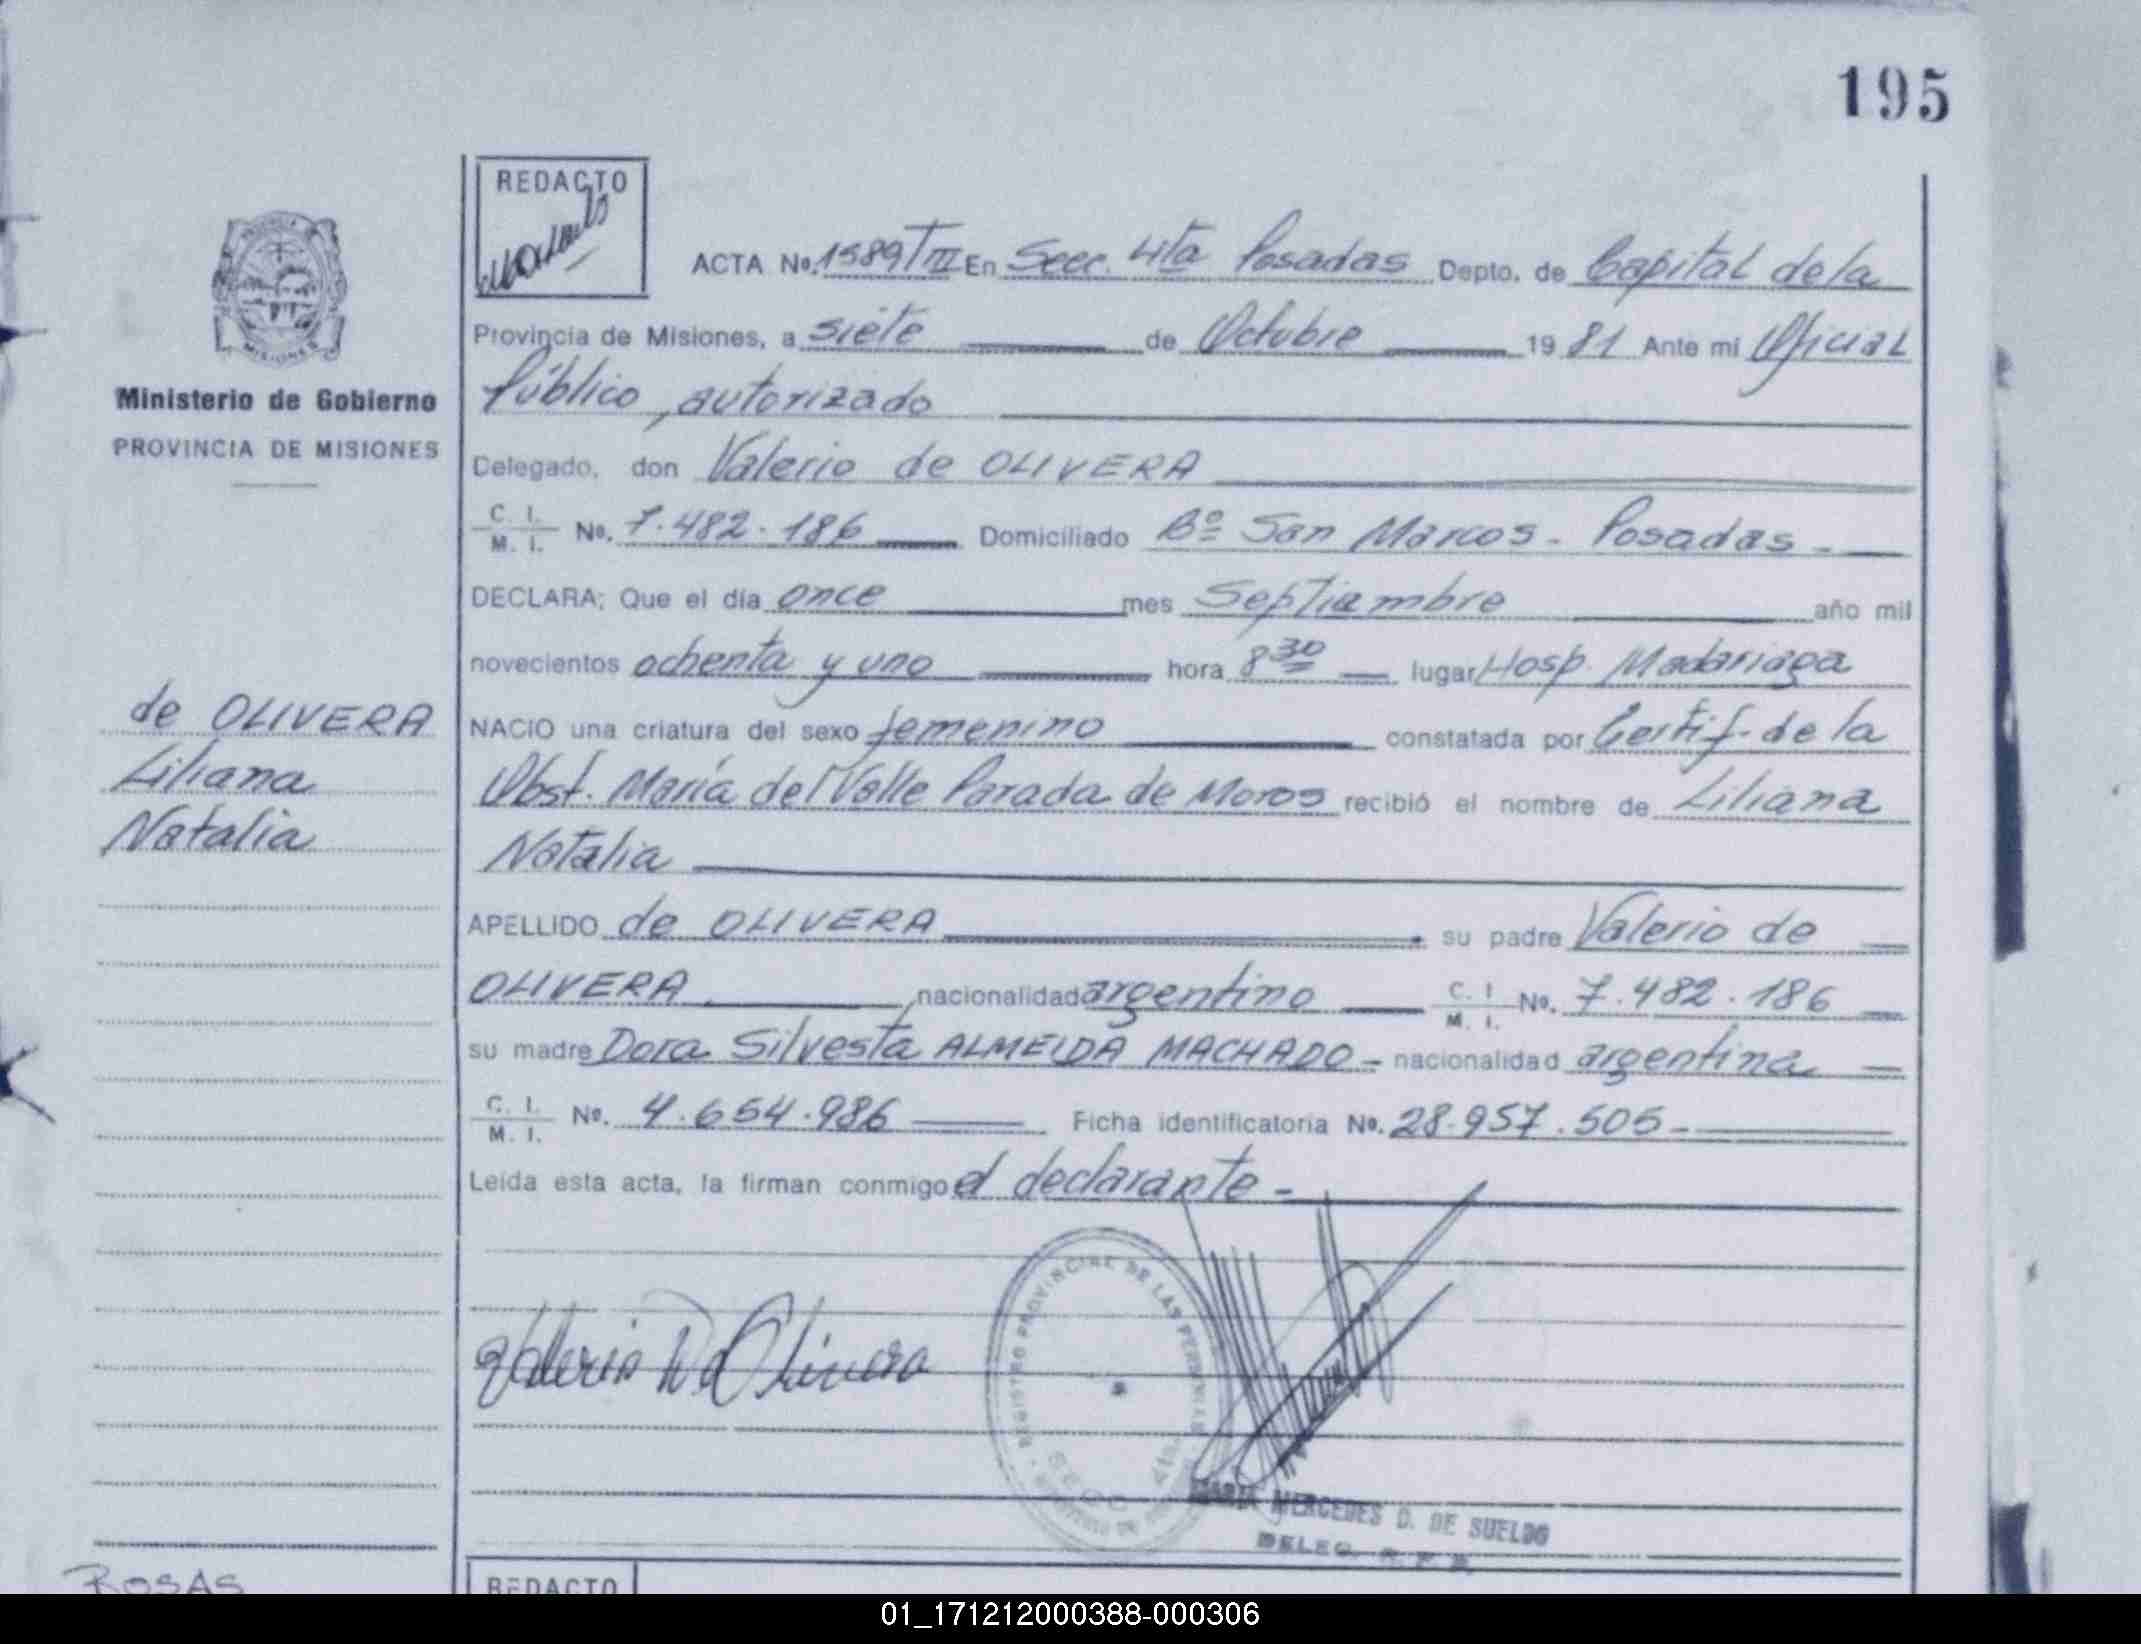 195
REDACTO
ACTA No. 1589 T III En Secc. 4ta Posadas Depto. de Capital de la
Provincia de Misiones, a siete de Octubre 19 81 Ante mi Oficial
Público, autorizado
Ministerio de Gobierno
PROVINCIA DE MISIONES
Delegado, don Valerio de OLIVERA
C. I.
M. I. No. 7.482.186 Domiciliado Bº San Marcos - Posadas -
DECLARA; Que el día once mes Septiambre año mil
novecientos ochenta y uno hora 8 30 lugar Hosp. Madariaga
de OLIVERA
Liliana
Natalia
NACIO una criatura del sexo femenino constatada por Certif. de la
Obst. María del Valle Parada de Moros recibió el nombre de Liliana
Natalia
APELLIDO de OLIVERA su padre Valerio de
OLIVERA, nacionalidad argentino C. I. M. I. No. 7.482.186
su madre Dora Silvesta ALMEIDA MACHADO - nacionalidad argentina
C. I.
M. I. No. 4.654.986 Ficha identificatoria No. 28.957.505 -
Leída esta acta, la firman conmigo el declarante -
Valerio De Olivera
REGISTRO PROVINCIAL DE LAS PERSONAS
SECC. 4ta.
MARIA MERCEDES D. DE SUELDO
DELEG. R. P. P.
ROSAS
REDACTO
MISIONES
01_171212000388-000306